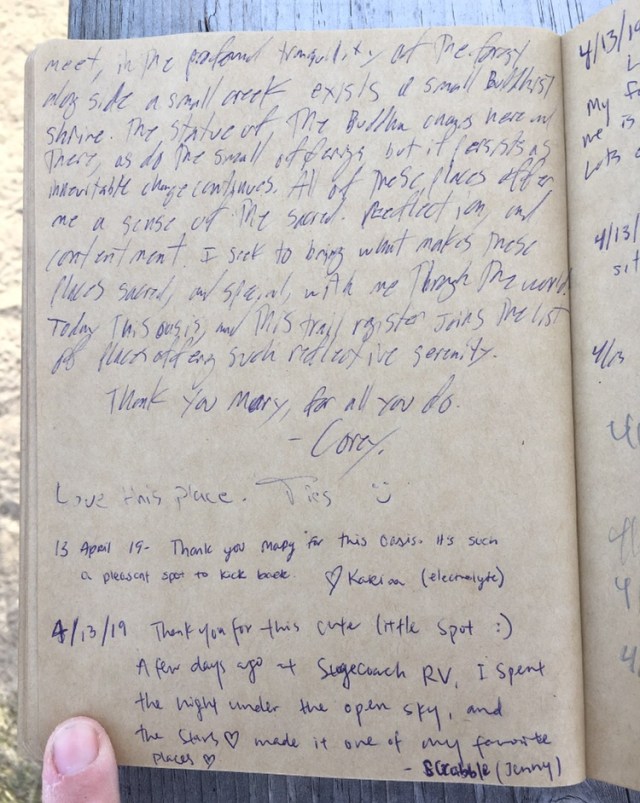 meet, in the profound tranquility of the forest
along side a small creek exists a small Buddhist
shrine. The statue of the Buddha changes here and
there, as do the small offerings, but it persists as
innevitable change continues. All of these places offer
me a sense of the sacred. Reflection, and
contentment. I seek to bring what makes these
places sacred, and special, with me through the world.
Today this oasis, and this trail register joins the list
of places offering such reflective serenity.
Thank you Mary, for all you do.
- Corey.
Love this place. Ties
13 April 19- Thank you Mary for this oasis. It's such
a pleasant spot to kick back. ♡ (electrolyte)
4/13/19 Thank you for this cute little spot :)
A few days ago at Stagecoach RV, I spent
the night under the open sky, and
the stars ♡ made it one of my favorite
places ♡ - Scrabble (Jenny)
4/13/19
My
me is
Lots
4/13/
sit
4/13